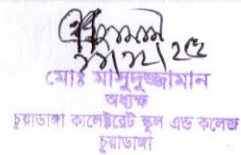 মোঃ মাসুদুজ্জামান
অধ্যক্ষ
চুয়াডাঙ্গা কালেক্টরেট স্কুল এন্ড কলেজ
চুয়াডাঙ্গা